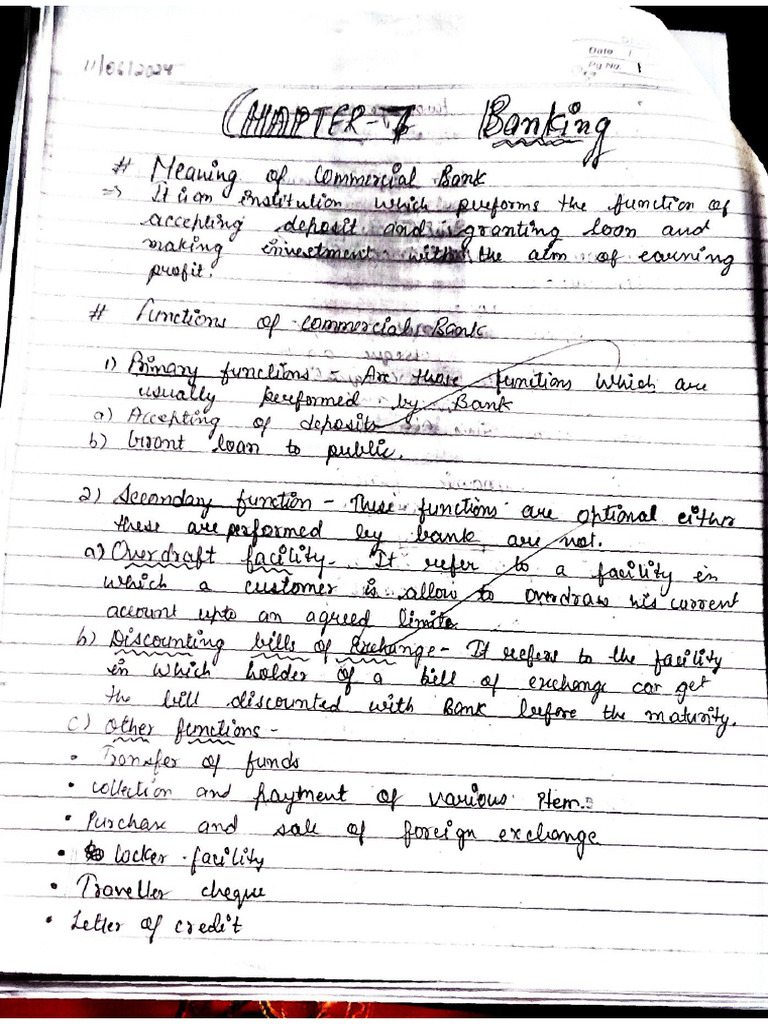 11/06/2024
Date
Pg No. 1
CHAPTER-7 Banking
# Meaning of commercial Bank
⇒ It is an institution which preforms the function of
accepting deposit and granting loan and
making investment with the aim of earning
profit.
# Functions of commercial Bank
1) Primary functions - Are those functions which are
usually performed by Bank
a) Accepting of deposits
b) Grant loan to public.
2) Secondary function - These functions are optional either
these are performed by bank are not.
a) Overdraft facility - It refer to a facility in
which a customer is allow to overdraw his current
account upto an agreed limit
b) Discounting bills of Exchange - It refers to the facility
in which holder of a bill of exchange can get
the bill discounted with Bank before the maturity.
c) Other functions -
• Transfer of funds
• collection and payment of various item.
• Purchase and sale of foreign exchange
• locker facility
• Traveller cheque
• Letter of credit